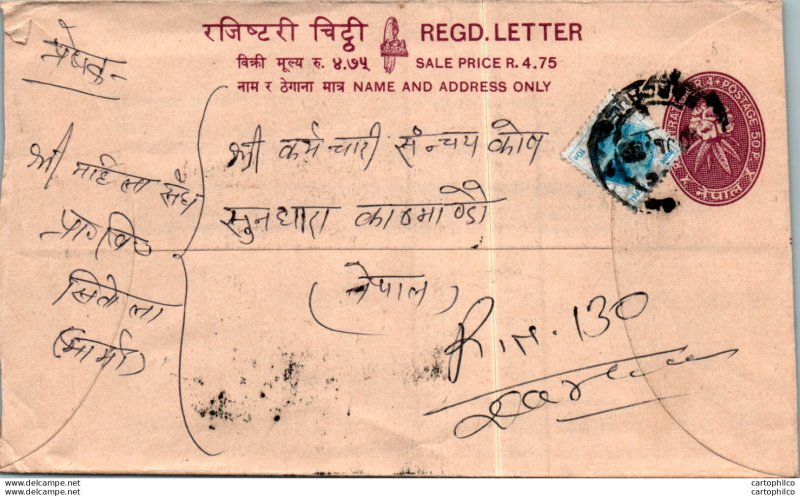 रजिष्टरी चिट्ठी REGD. LETTER
बिक्री मूल्य रु. ४.७५ SALE PRICE R. 4.75
नाम र ठेगाना मात्र NAME AND ADDRESS ONLY
प्रेषक -
श्री महिला संघ
सितोला
श्री कर्मचारी संन्चय कोष
सुनधारा काठमाण्डौ
(नेपाल)
R.N. 130
POSTAGE 50 P.
नेपाल
cartophilco
cartophilco
www.delcampe.net
www.delcampe.net